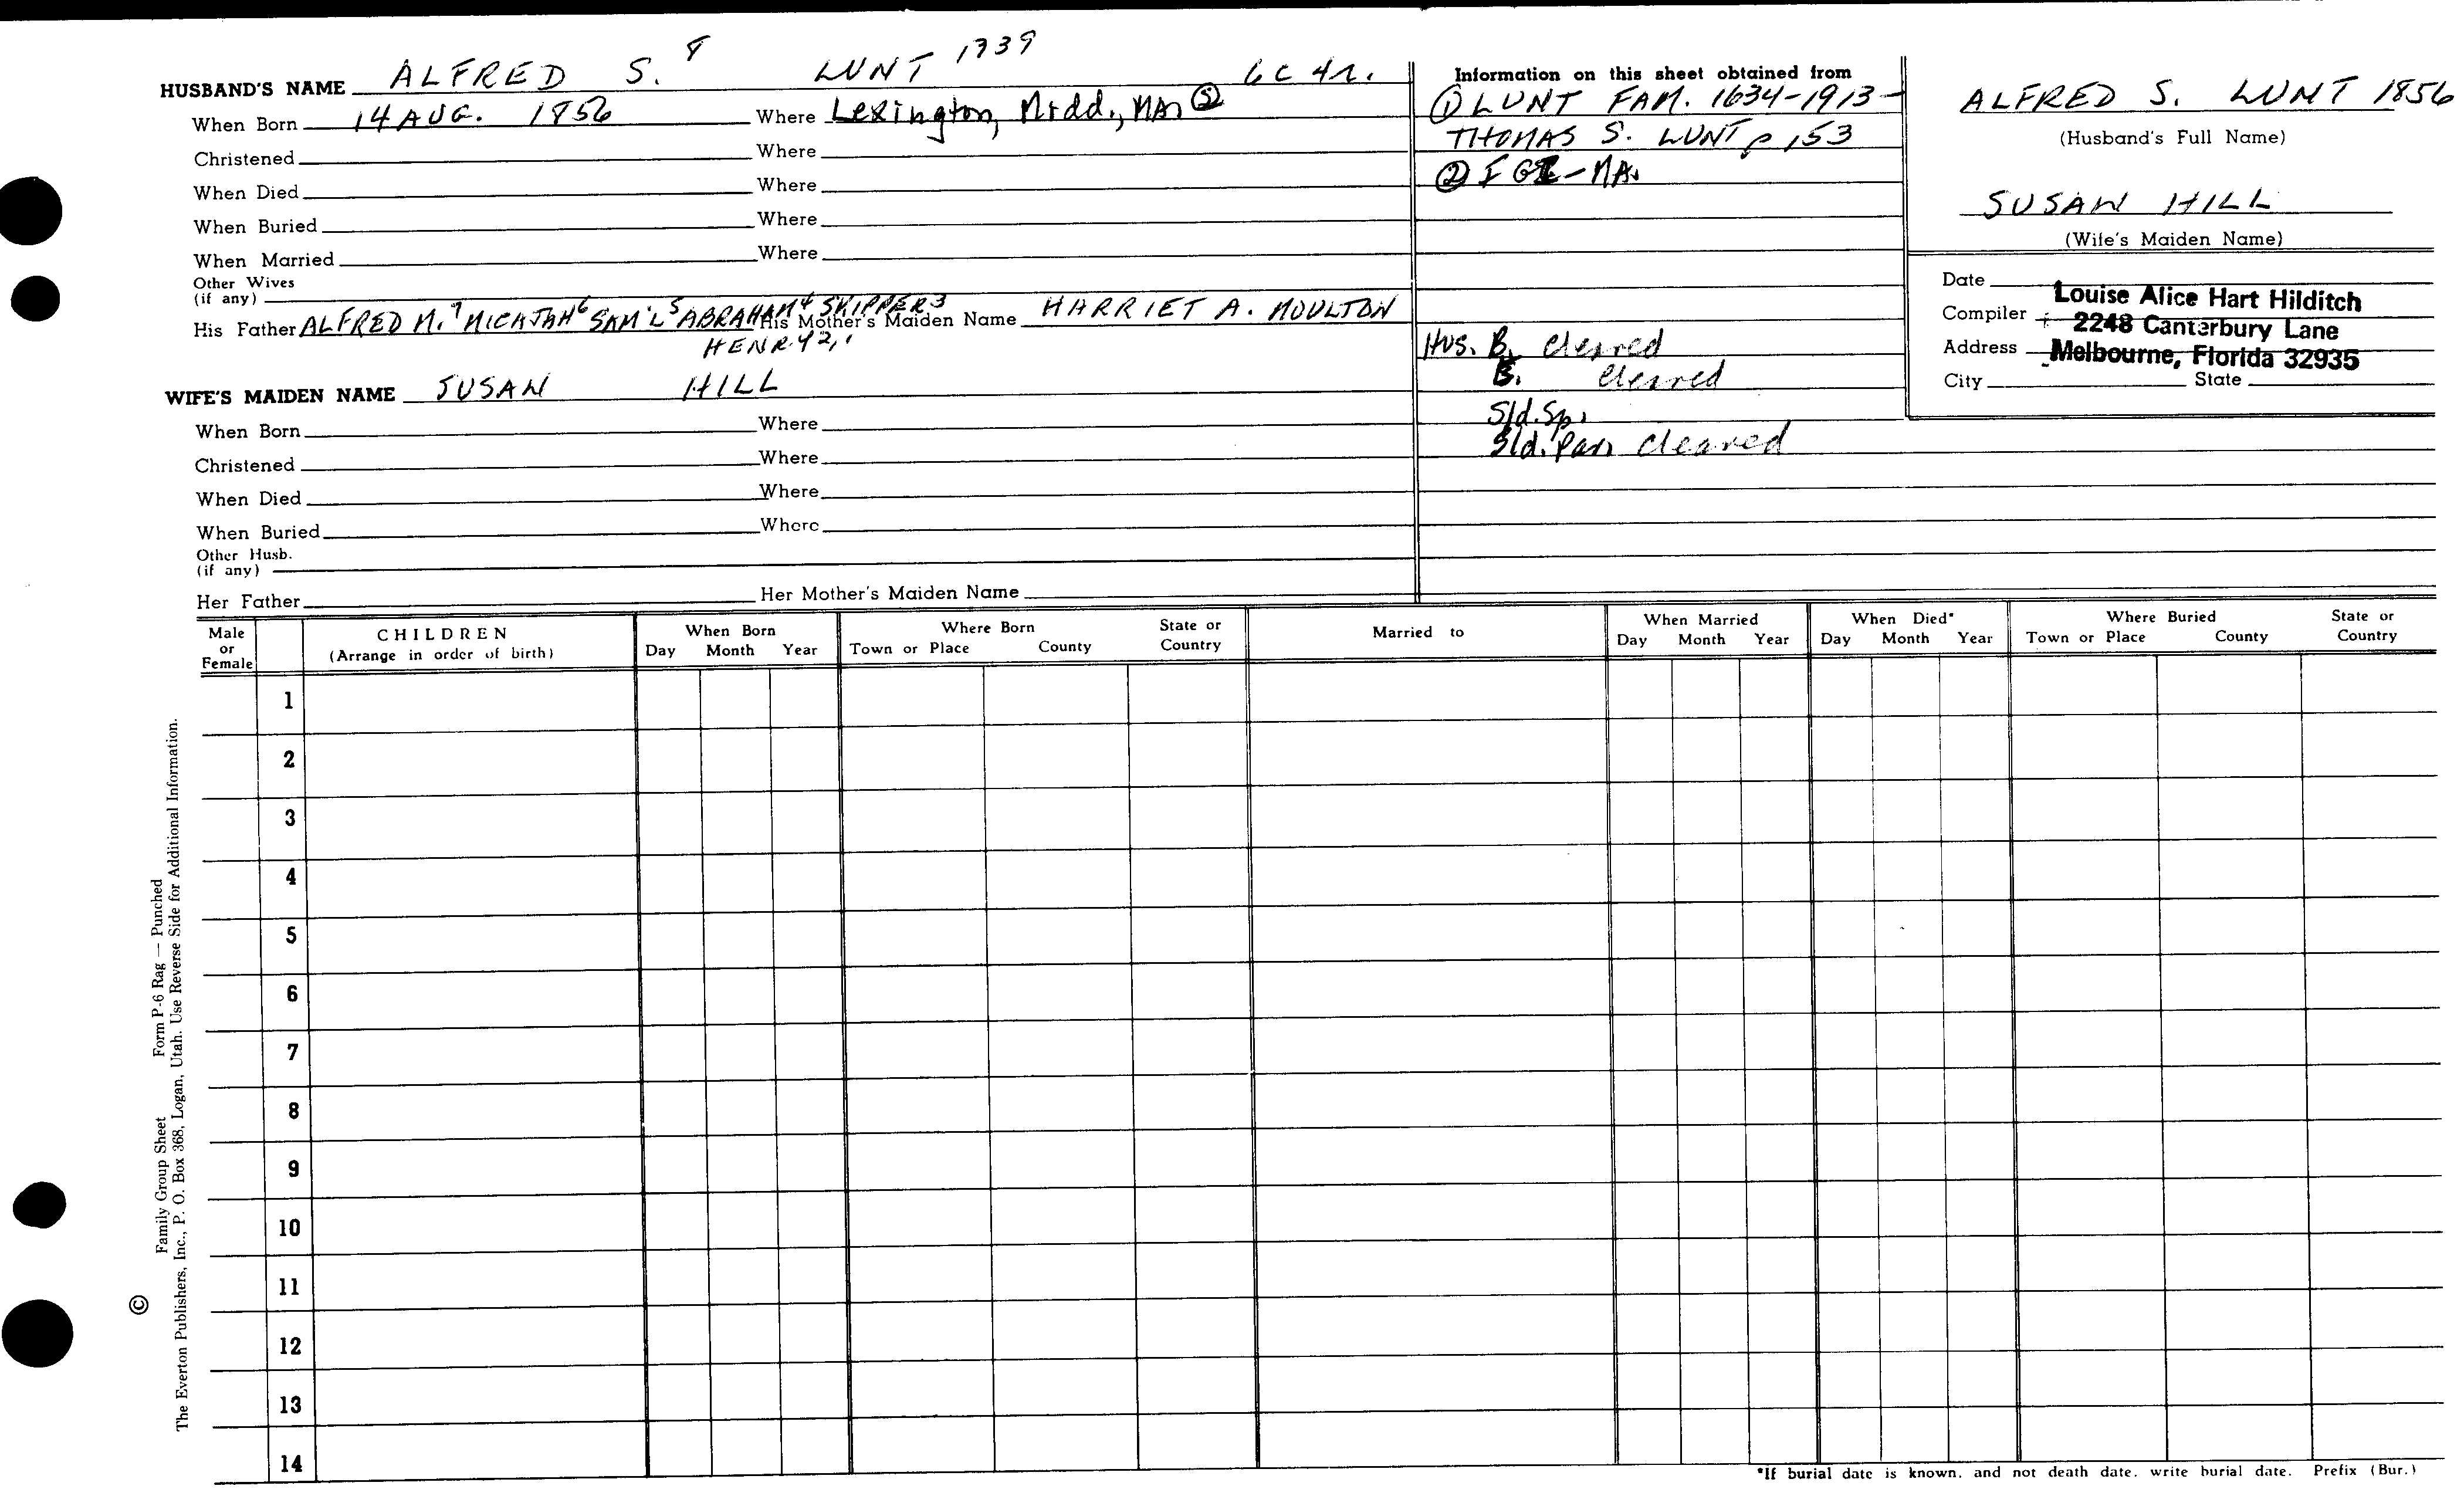 HUSBAND'S NAME ALFRED S. 8 LUNT 1739 6C 4r.
When Born 14 AUG. 1856 Where Lexington, Midd., MA.
Christened Where
When Died Where
When Buried Where
When Married Where
Other Wives
(if any)
His Father ALFRED M.7 MICAJAH6 SAM'L5 ABRAHAM4 SKIPPER3 His Mother's Maiden Name HARRIET A. MOULTON
HENRY2,1
WIFE'S MAIDEN NAME SUSAN HILL
When Born Where
Christened Where
When Died Where
When Buried Where
Other Husb.
(if any)
Her Father Her Mother's Maiden Name
Information on this sheet obtained from
① LUNT FAM. 1634-1913-
THOMAS S. LUNT p 153
② IGI-MA.
Hus. B. cleared
E. cleared
Sld. Sp.
Sld. Par. cleared
ALFRED S. LUNT 1856
(Husband's Full Name)
SUSAN HILL
(Wife's Maiden Name)
Date
Louise Alice Hart Hilditch
Compiler
2248 Canterbury Lane
Address
Melbourne, Florida 32935
City State
Male or Female
CHILDREN
(Arrange in order of birth)
When Born
Day Month Year
Where Born
Town or Place County State or Country
Married to
When Married
Day Month Year
When Died*
Day Month Year
Where Buried
Town or Place County State or Country
1
2
3
4
5
6
7
8
9
10
11
12
13
14
*If burial date is known, and not death date, write burial date. Prefix (Bur.)
Family Group Sheet Form P-6 Rag — Punched
© The Everton Publishers, Inc., P. O. Box 368, Logan, Utah. Use Reverse Side for Additional Information.